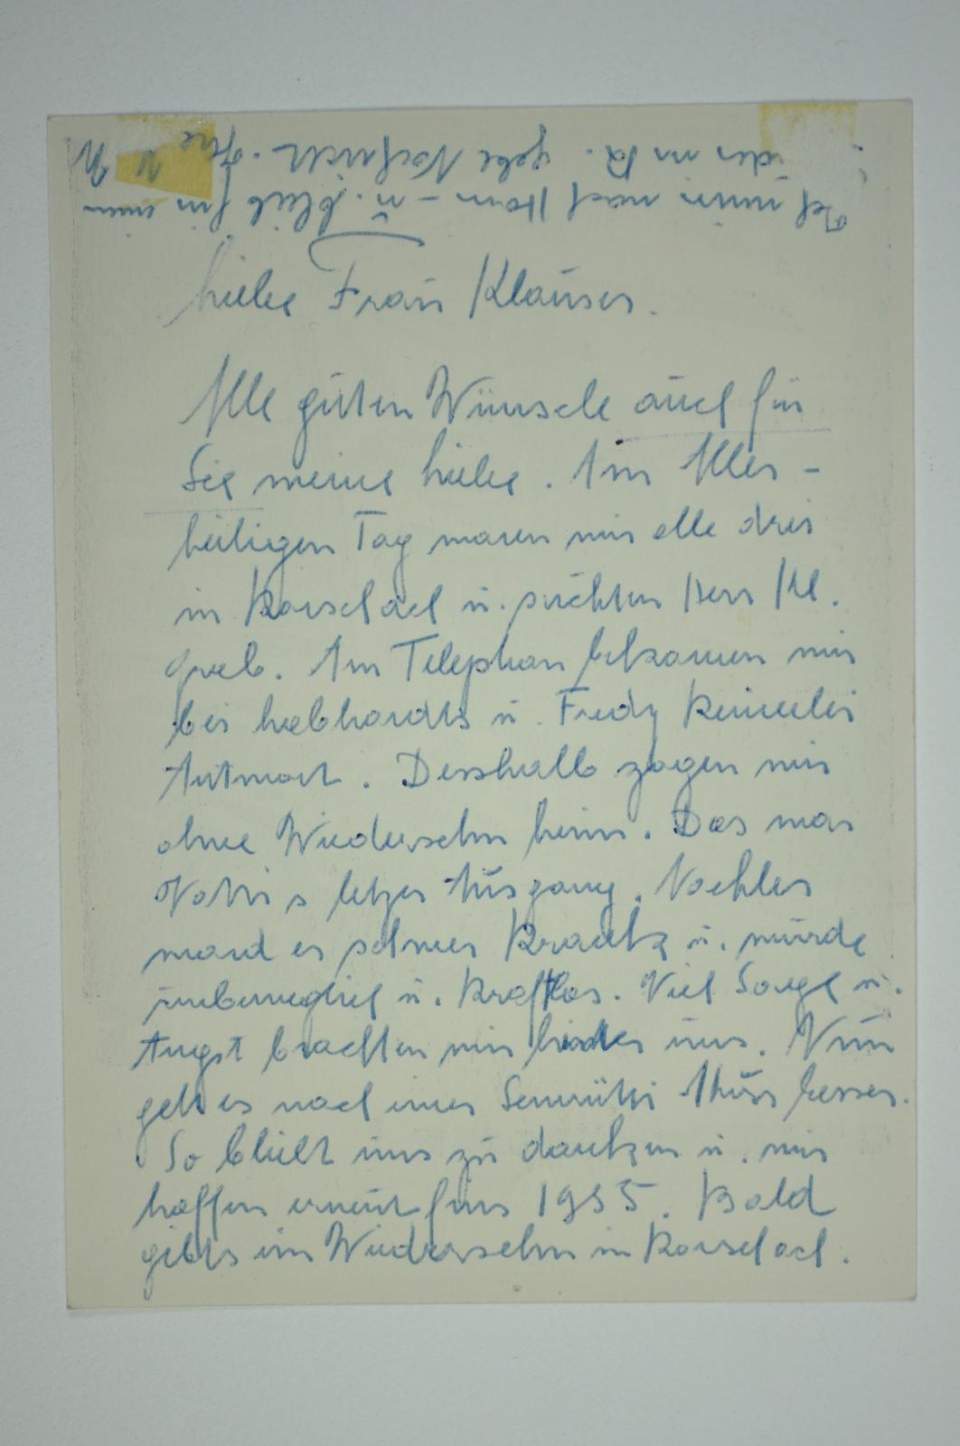 Liebe Frau Klauser.
Alle guten Wünsche auch für
Sie meine Liebe. Am Aller-
heiligen Tag waren wir alle drei
in Rorschach u. suchten Herr Kl.
Grab. Am Telephon bekamen wir
bei Lebhardts u. Fredy keinerlei
Antwort. Desshalb zogen wir
ohne Wiedersehn heim. Das war
Vattis letzer Ausgang. Nachher
ward er schwer krank u. wurde
unbeweglich u. kraftlos. Viel Sorge u.
Angst brachten wir hinter uns. Nun
geht es nach einer Kur besser.
So bleibt uns zu danken u. wir
hoffen erneut fürs 1955. Bald
gibts ein Wiedersehn in Rorschach.
Ich nach Horn - u. bleib für
in R. gebe Nachricht. Ihre